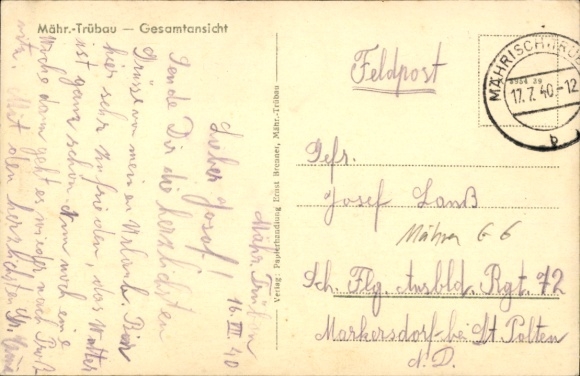 Mähr.-Trübau — Gesamtansicht
Mähr. Trübau
16. VII. 40
Lieber Josef!
Sende Dir die herzlichsten
Grüsse von meinem Urlaub. Bin
hier sehr zufrieden, das Wetter
ist ganz schön. Nun noch eine
Woche dann geht es wieder nach
Mit den herzlichsten Gr.
Verlag: Papierhandlung Ernst Brenner, Mähr.-Trübau
Feldpost
MÄHRISCH TRÜBAU
17.7.40.-12
b
Gefr.
Josef Lanß
Mährer G 6
Sch. Flg. Ausbld. Rgt. 72
Markersdorf bei St. Pölten
N. D.